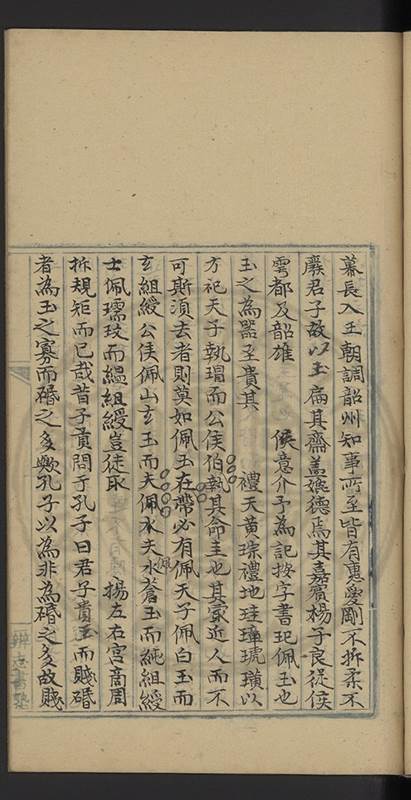 幕長入王朝調韶州知事所至皆有惠愛剛不折柔不
厭君子故以玉扁其齋盖嫓德焉其嘉賔楊子良従侯
雩都及韶雄　侯意介予為記按字書玘佩玉也
玉之為噐至貴其　禮天黄琮禮地珪璋琥璜以
方祀天子執瑁而公侯伯執其命圭也其最近人而不
可斯湏去者則莫如佩玉在帶必有佩天子佩白玉而
玄組綬公侯佩山玄玉而夫佩水夫水蒼玉而純組綬
士佩瓀玟而緼組綬豈徒取　揚左右宫商周
折規矩而已哉昔子貢問于孔子曰君子貴玉而賤碈
者為玉之寡而碈之多歟孔子以為非為碈之多故賤
佩
辨志書塾